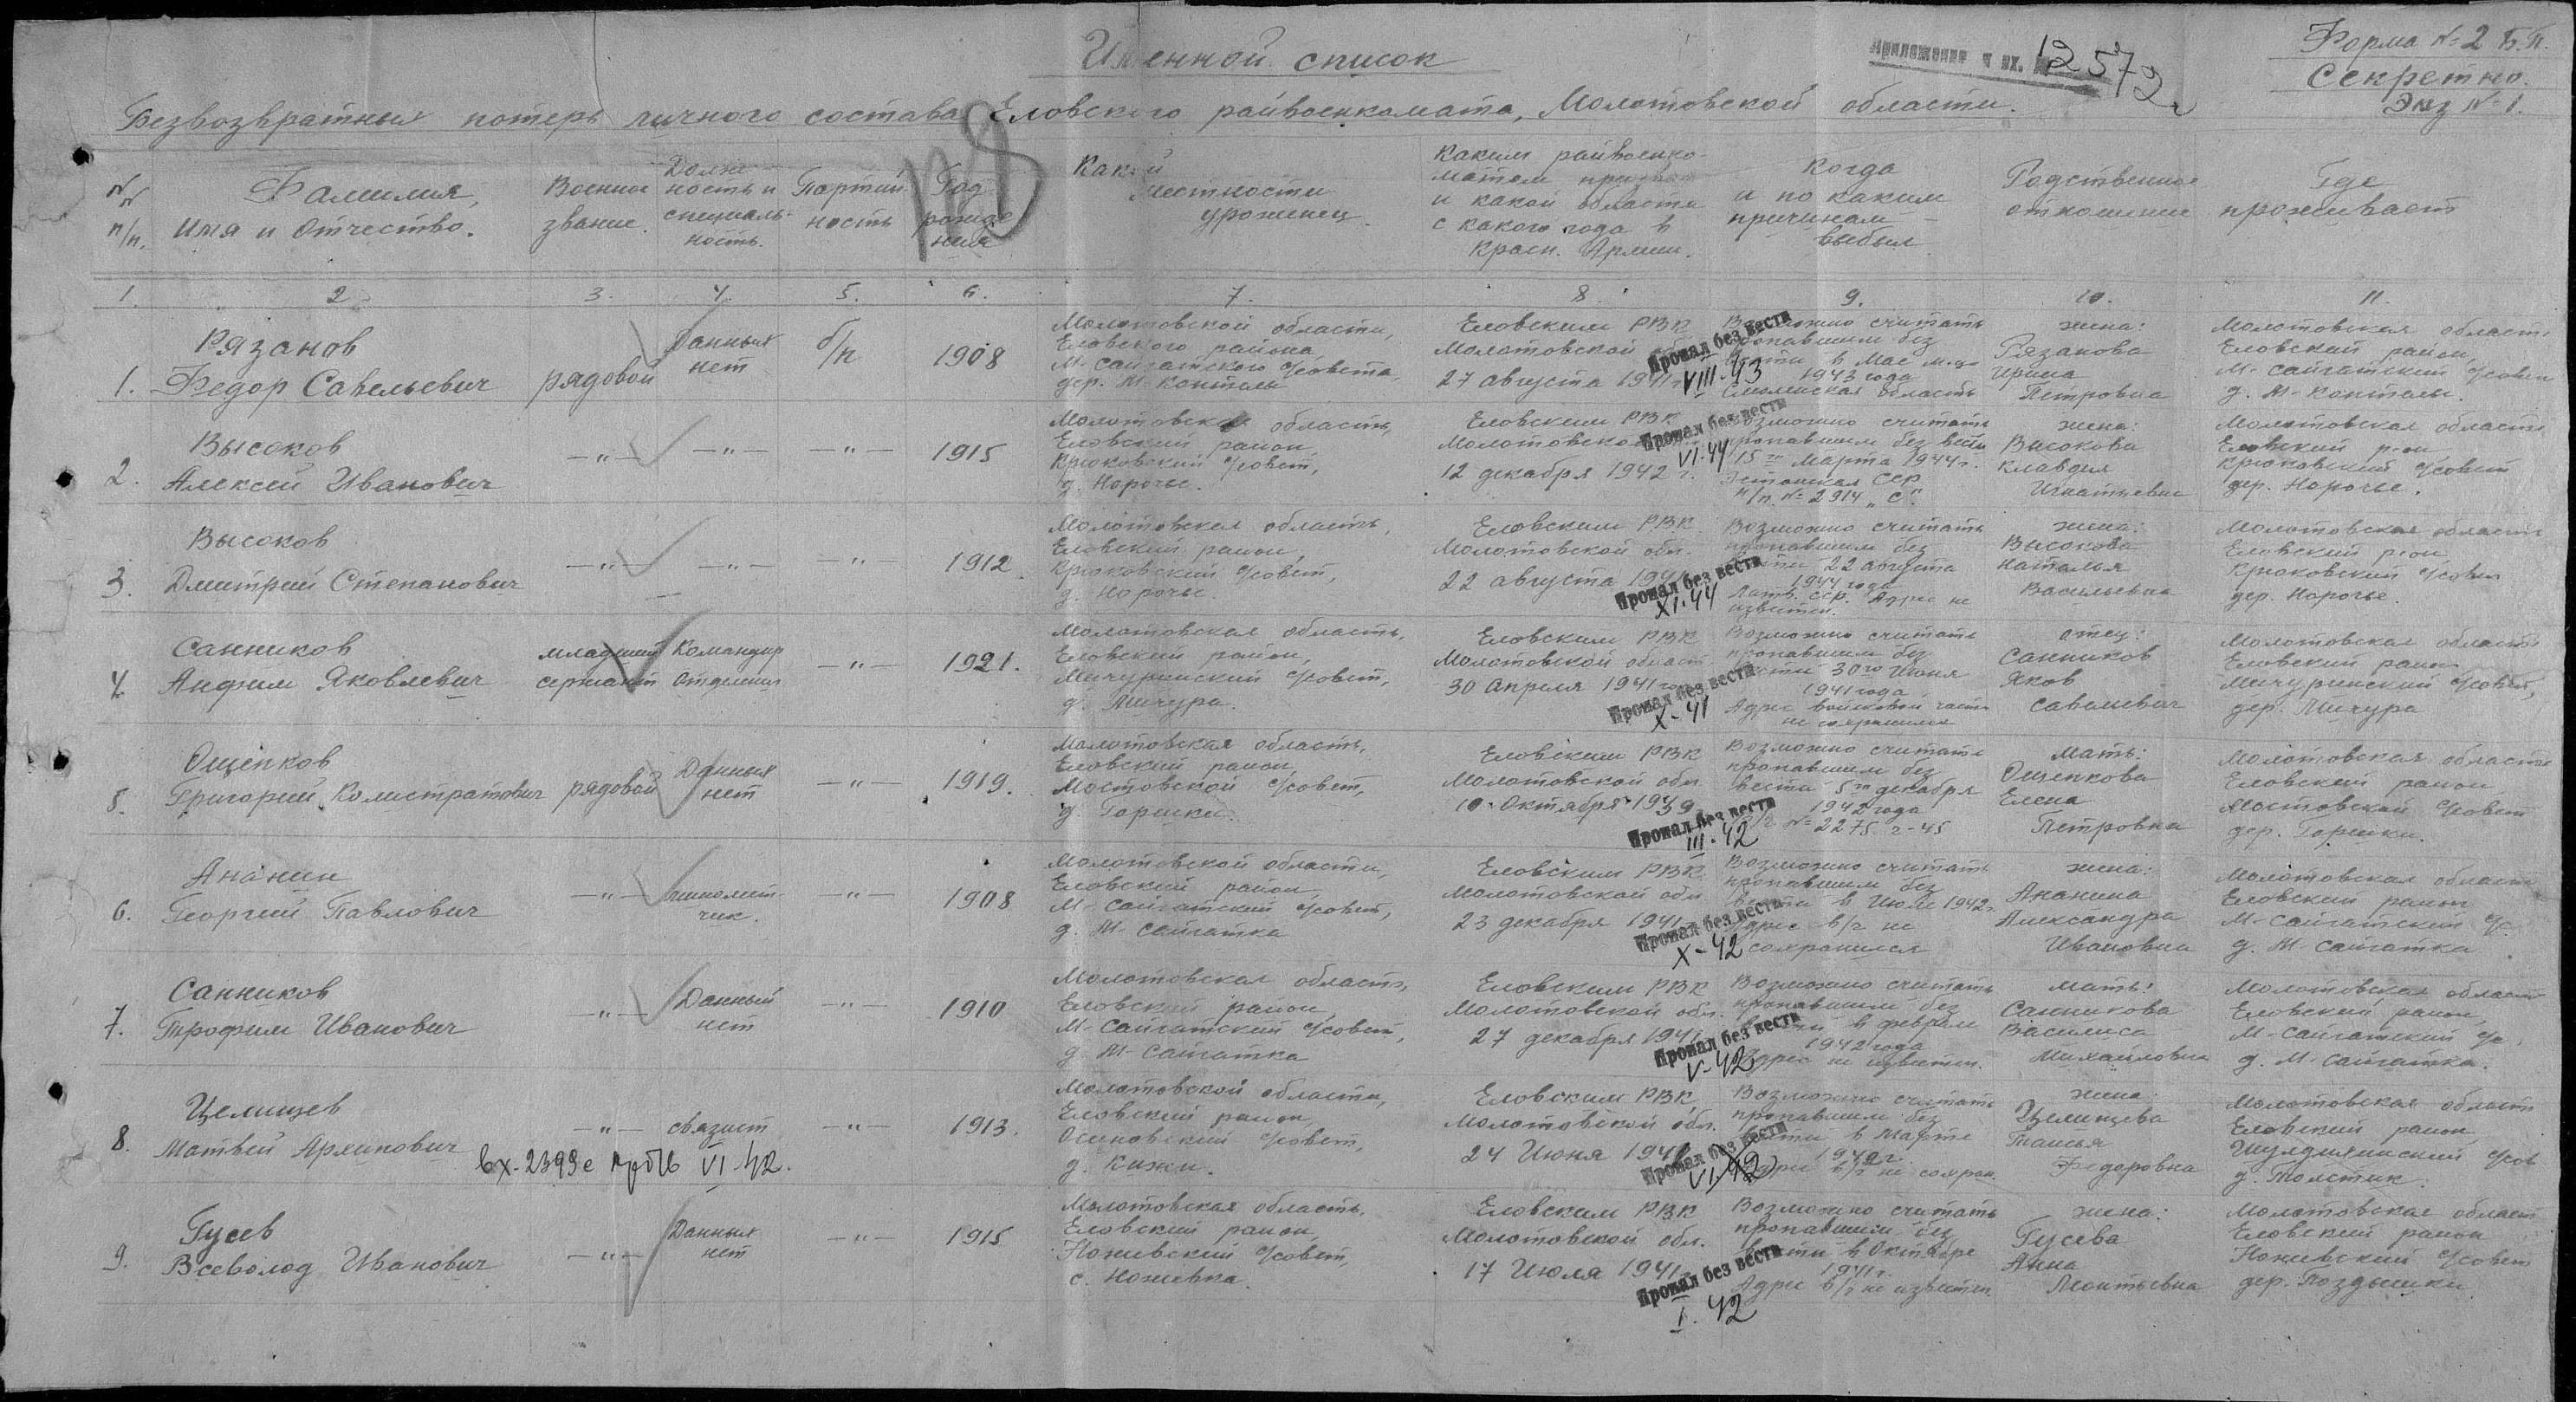 Именной список
Приложение к вх. № 12572
Форма № 2 Б.П.
Секретно.
Экз № 1.
Безвозвратных потерь личного состава Еловского райвоенкомата, Молотовской области.
№№ п/п.
Фамилия, Имя и Отчество.
Военное звание.
Должность и специальность.
Партийность
Год рождения
Какой местности уроженец
Каким райвоенкоматом призван и какой области с какого года в Красн. Армии.
Когда и по каким причинам выбыл
Родственное отношение
Где проживает
1. 2. 3. 4. 5. 6. 7. 8. 9. 10. 11.
1.
Рязанов
Федор Савельевич
рядовой
Данных
нет
б/п
1908
Молотовской области,
Еловского района
М-Сайгатского с/совета,
дер. М-Конталы
Еловским РВК
Молотовской
27 августа 1941 г.
Пропал без вести
VIII-43
Возможно считать
пропавшим без
вести в Мае м-це
1943 года
Смоленская область
жена:
Рязанова
Ирина
Петровна
Молотовская область
Еловский район,
М-Сайгатский с/совет
д. М-Конталы.
2.
Высоков
Алексей Иванович
—"— —"— —"—
1915
Молотовская область,
Еловский район,
Крюковский с/совет,
д. Нарочье.
Еловским РВК
Молотовской
12 декабря 1942 г.
Пропал без вести
VI-44
Возможно считать
пропавшим без вести
15го Марта 1944 г.
Эстонская ССР
п/п. № 2914 "С".
жена:
Высокова
Клавдия
Игнатьевна
Молотовская область
Еловский р-он
Крюковский с/совет
дер. Нарочье.
3.
Высоков
Дмитрий Степанович
—"— —"— —"—
1912.
Молотовская область,
Еловский район,
Крюковский с/совет,
д. Нарочье.
Еловским РВК
Молотовской обл.
22 августа
Пропал без вести
XI-44
Возможно считать
пропавшим без
вести 22 августа
1944 года
Латв. ССР. Адрес не
известен.
жена:
Высокова
Наталья
Васильевна
Молотовская область
Еловский р-он
Крюковский с/совет
дер. Нарочье.
4.
Санников
Анфим Яковлевич
младший
сержант
Командир
отделения
—"—
1921.
Молотовская область,
Еловский район,
Мичуринский с/совет,
д. Мичура.
Еловским РВК
Молотовской област
30 Апреля 1941 год
Пропал без вести
X-41
Возможно считать
пропавшим без
вести 30го Июня
1941 года
Адрес войсковой части
не сохранился
отец:
Санников
Яков
Савельевич
Молотовская область
Еловский район
Мичуринский с/совет,
дер. Мичура
5.
Ощепков
Григорий Калистратович
рядовой
Данных
нет
—"—
1919.
Молотовская область,
Еловский район
Мостовской с/совет,
д. Горшки.
Еловским РВК
Молотовской обл
10 Октября 1939
Пропал без вести
III-42
Возможно считать
пропавшим без
вести 5го декабря
1942 года
№ 2275 г-45
Мать:
Ощепкова
Елена
Петровна
Молотовская область
Еловский район
Мостовской с/совет
дер. Горшки.
6.
Ананин
Георгий Павлович
—"—
—"—
1908
Молотовской области,
Еловский район,
М-Сайгатский с/совет,
д. М-Сайгатка
Еловским РВК
Молотовской обл
23 декабря 1941
Пропал без вести
X-42
Возможно считать
пропавшим без
вести в Июле 1942 г.
Адрес в/ч не
сохранился
жена:
Ананина
Александра
Ивановна
Молотовская область
Еловский район
М-Сайгатский с/с.
д. М-Сайгатка
7.
Санников
Трофим Иванович
—"—
Данных
нет
—"—
1910
Молотовская область,
Еловский район
М-Сайгатский с/совет,
д. М-Сайгатка
Еловским РВК
Молотовской обл.
27 декабря 1941
Пропал без вести
V-42
Возможно считать
пропавшим без
вести в феврале
1942 года
Адрес не известен.
мать:
Санникова
Василиса
Михайловна
Молотовская область
Еловский район,
М-Сайгатский с/с.
д. М-Сайгатка.
8.
Целищев
Матвей Архипович
вх-2399с VI.42.
—"—
связист
—"—
1913.
Молотовской области,
Еловский район,
Осиновский с/совет,
д. Кижи.
Еловским РВК
Молотовской обл.
24 Июня 1941
Пропал без вести
VI-42
Возможно считать
пропавшим без
вести в Марте
1942 г.
Адрес в/ч не сохран.
жена:
Целищева
Таисья
Федоровна
Молотовская область
Еловский район
Шулдихинский с/сов
д. Толстик.
9.
Гусев
Всеволод Иванович
—"—
Данных
нет
—"—
1915
Молотовская область,
Еловский район,
Ножевский с/совет,
с. Ножевка.
Еловским РВК
Молотовской обл.
17 Июля 1941 г.
Пропал без вести
I.42
Возможно считать
пропавшим без
вести в Октябре
1941 г.
Адрес в/ч не известен.
жена:
Гусева
Анна
Леонтьевна
Молотовская област
Еловский район
Ножевский с/совет
дер. Поздышки.